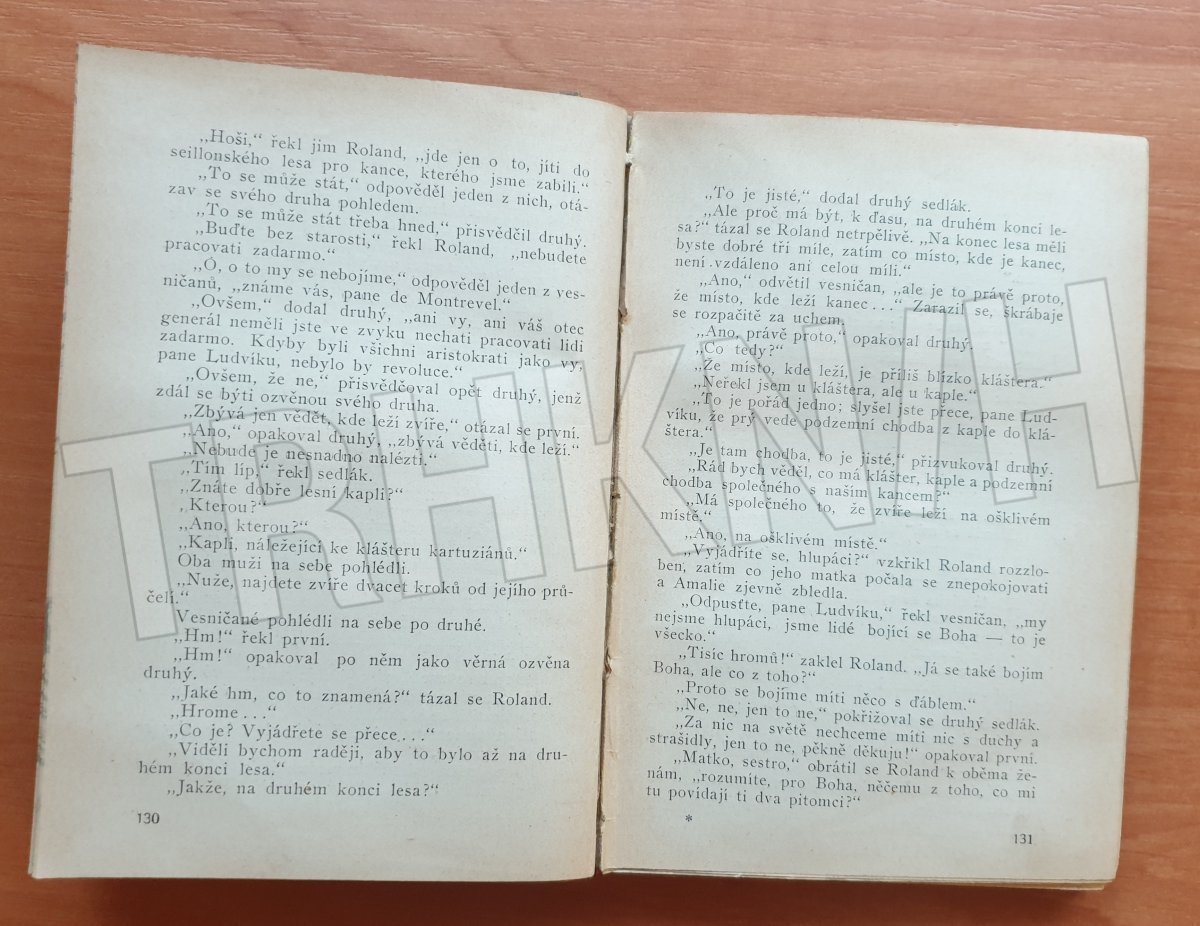 „Hoši,“ řekl jim Roland, „jde jen o to, jíti do
seillonského lesa pro kance, kterého jsme zabili.“
„To se může stát,“ odpověděl jeden z nich, otá-
zav se svého druha pohledem.
„To se může stát třeba hned,“ přisvědčil druhý.
„Buďte bez starosti,“ řekl Roland, „nebudete
pracovati zadarmo.“
„Ó, o to my se nebojíme,“ odpověděl jeden z ves-
ničanů, „známe vás, pane de Montrevel.“
„Ovšem,“ dodal druhý, „ani vy, ani váš otec
generál neměli jste ve zvyku nechati pracovati lidi
zadarmo. Kdyby byli všichni aristokrati jako vy,
pane Ludvíku, nebylo by revoluce.“
„Ovšem, že ne,“ přisvědčoval opět druhý, jenž
zdál se býti ozvěnou svého druha.
„Zbývá jen vědět, kde leží zvíře,“ otázal se první.
„Ano,“ opakoval druhý, „zbývá věděti, kde leží.“
„Nebude je nesnadno nalézti.“
„Tím líp,“ řekl sedlák.
„Znáte dobře lesní kapli?“
„Kterou?“
„Ano, kterou?“
„Kapli, náležející ke klášteru kartuziánů.“
Oba muži na sebe pohlédli.
„Nuže, najdete zvíře dvacet kroků od jejího prů-
čelí.“
Vesničané pohlédli na sebe po druhé.
„Hm!“ řekl první.
„Hm!“ opakoval po něm jako věrná ozvěna
druhý.
„Jaké hm, co to znamená?“ tázal se Roland.
„Hrome . . .“
„Co je? Vyjádřete se přece . . .“
„Viděli bychom raději, aby to bylo až na dru-
hém konci lesa.“
„Jakže, na druhém konci lesa?“
130
„To je jisté,“ dodal druhý sedlák.
„Ale proč má být, k ďasu, na druhém konci le-
sa?“ tázal se Roland netrpělivě. „Na konec lesa měli
byste dobré tři míle, zatím co místo, kde je kanec,
není vzdáleno ani celou míli.“
„Ano,“ odvětil vesničan, „ale je to právě proto,
že místo, kde leží kanec . . .“ Zarazil se, škrábaje
se rozpačitě za uchem.
„Ano, právě proto,“ opakoval druhý.
„Co tedy?“
„Že místo, kde leží, je příliš blízko kláštera.“
„Neřekl jsem u kláštera, ale u kaple.“
„To je pořád jedno; slyšel jste přece, pane Lud-
víku, že prý vede podzemní chodba z kaple do klá-
štera.“
„Je tam chodba, to je jisté,“ přizvukoval druhý.
„Rád bych věděl, co má klášter, kaple a podzemní
chodba společného s naším kancem?“
„Má společného to, že zvíře leží na ošklivém
místě.“
„Ano, na ošklivém místě.“
„Vyjádříte se, hlupáci?“ vzkřikl Roland rozzlo-
ben, zatím co jeho matka počala se znepokojovati
a Amalie zjevně zbledla.
„Odpusťte, pane Ludvíku,“ řekl vesničan, „my
nejsme hlupáci, jsme lidé bojící se Boha — to je
všecko.“
„Tisíc hromů!“ zaklel Roland. „Já se také bojím
Boha, ale co z toho?“
„Proto se bojíme míti něco s ďáblem.“
„Ne, ne, jen to ne,“ pokřižoval se druhý sedlák.
„Za nic na světě nechceme míti nic s duchy a
strašidly, jen to ne, pěkně děkuju!“ opakoval první.
„Matko, sestro,“ obrátil se Roland k oběma že-
nám, „rozumíte, pro Boha, něčemu z toho, co mi
tu povídají ti dva pitomci?“
*
131
TRHKNIH